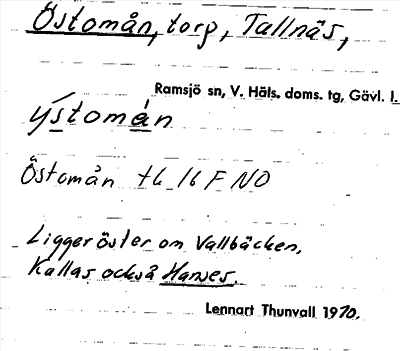 Östomån, torp, Tallnäs,
Ramsjö sn, V. Häls. doms. tg, Gävl. l.
ýstomån
Östomån tk 16 F NO
Ligger öster om Vallbäcken.
Kallas också Hanses.
Lennart Thunvall 1970.